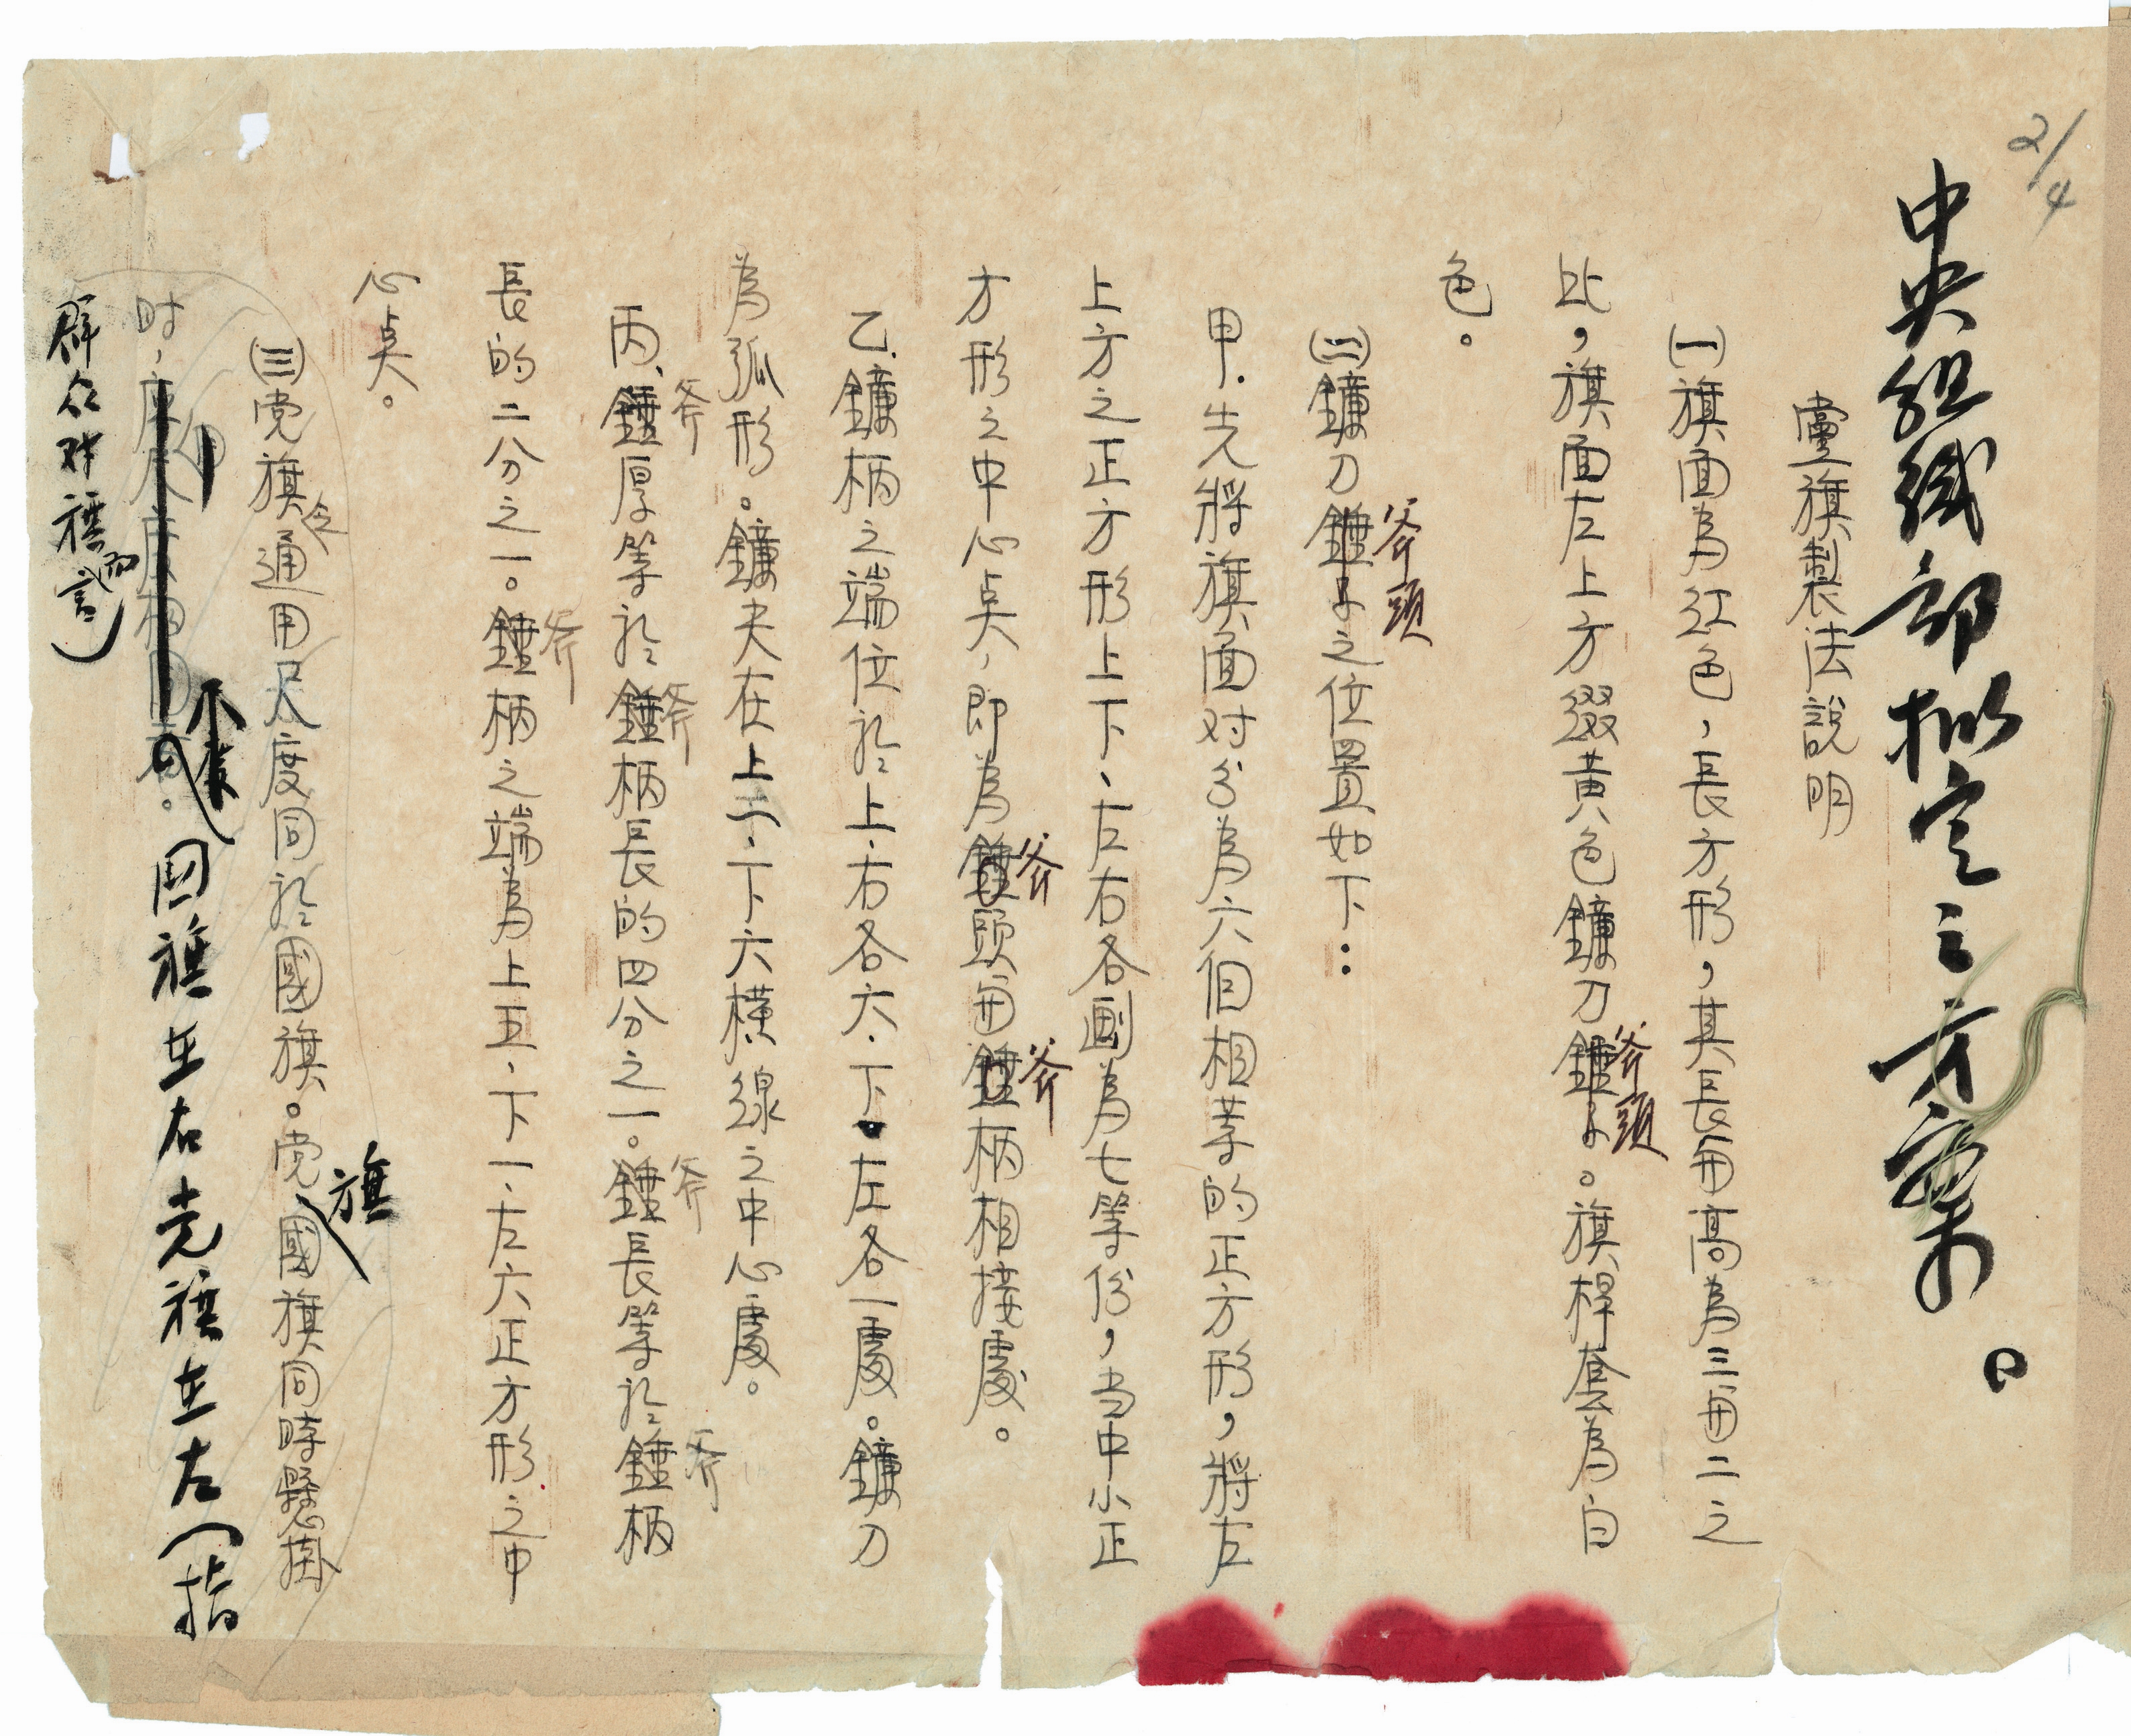 2/4
中央組織部擬定之方案。
黨旗製法說明
㈠旗面為红色，長方形，其長与高為三与二之
比，旗面左上方綴黃色鐮刀錘子。旗桿套為白
斧頭
色。
㈡鐮刀錘子之位置如下：
斧頭
甲.先將旗面对分為六個相等的正方形，將左
上方之正方形上下、左右各画為七等份，当中小正
方形之中心点，即為錘頭与錘柄相接處。
斧 斧
乙.鐮柄之端位於上、右各六、下、左各一處。鐮刀
為弧形。鐮夾在上二、下六橫線之中心處。
丙、錘厚等於錘柄長的四分之一。錘長等於錘柄
斧 斧 斧 斧
長的二分之一。錘柄之端為上五、下一、左六正方形之中
斧
心点。
㈢党旗通用尺度同於國旗。党國旗同時懸掛
旗
时，
国旗在右党旗在左（指
群众对旗而言）